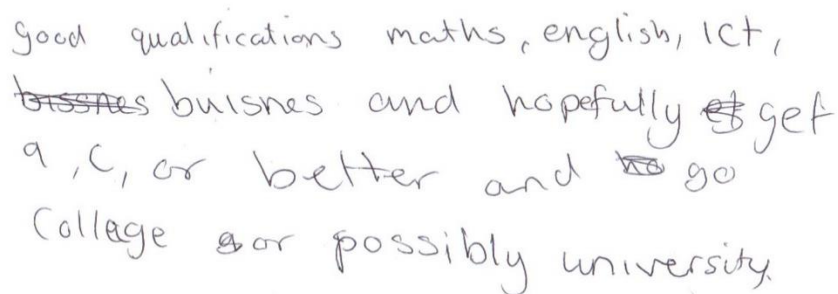 good qualifications maths, english, ict,
buisnes and hopefully get
a, C, or better and go
Collage or possibly university.